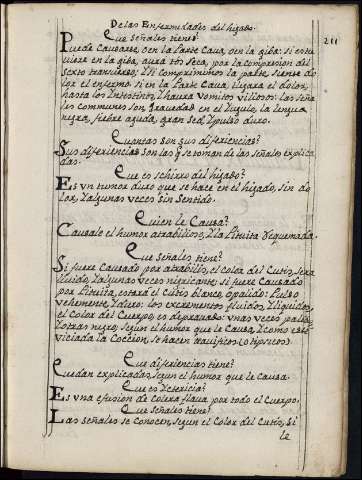 De las Enfermedades del higado.
211
Que señales tiene?
Puede Causarse, o en la Parte Caua, o en la giba: si estu
uiere en la giba, aura tos seca, por la compresion del
sexto transuerso; Y si Comprimimos la parte, siente do
lor el enfermo: si en la Parte Caua, llegara el dolor,
hasta los Intestinos, Y haura Vomitos viliosos: las seña
les communes son, Grauedad en el Iugulo, la lengua
negra, fiebre aguda, gran sed, Y pulso duro.
Quantas son sus diferiencias?
Sus diferiencias son las que se toman de las señales explica
das.
Que es schirro del higado?
Es vn tumor duro que se hace en el higado, sin do
lor, Y algunas veces sin Sentido.
Quien le Causa?
Causale el humor atrabilioso, Y la Pituita Yequemada.
Que Señales tiene?
Si fuere Causado por atrabilis, el color del Cutis, sera
liuido, Y algunas veces nigricante; si fuere Causado
por Pituita, estará el Cutis blanco, o palido: Pulso
vehemente, Y celer: los excrementos fluidos, Y liquidos,
el Color del Cuerpo, es deprauado: vnas veces palido,
Y otras negro, segun el humor que le Causa, Y como esta
viciada la Coccion, se hacen
Que diferiencias tiene?
Quedan explicadas, segun el humor que le Causa.
Que es Yctericia?
Es vna efusion de Colera flaua por todo el Cuerpo.
Que Señales tiene?
Las señales se Conocen, segun el Color del Cutis, Si
le